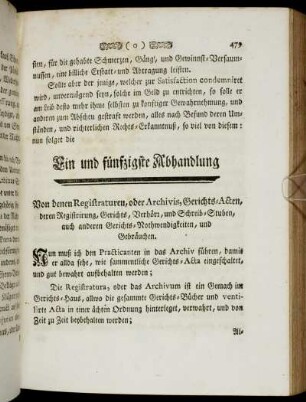 ( o ) 479
sten, für die gehabte Schmerzen, Gäng, und Gewinnst-Versaum-
nussen, eine billiche Ersatz- und Abtragung leisten.
Sollte aber der jenige, welcher zur Satisfaction condemniret
wird, unvermögend seyn, solche im Geld zu entrichten, so solle er
am Leib desto mehr ihme selbsten zu künftiger Gewahrnehmung, und
anderen zum Abscheu gestraft werden, alles nach Befund deren Um-
ständen, und richterlichen Rechts-Erkanntnuß, so viel von diesem:
nun folget die
Ein und fünfzigste Abhandlung
Von denen Registraturen, oder Archivis, Gerichts-Acten,
deren Registrirung, Gerichts, Verhör, und Schreib-Stuben,
auch anderen Gerichts-Nothwendigkeiten, und
Gebräuchen.
Nun muß ich den Practicanten in das Archiv führen, damit
er allda sehe, wie sammentliche Gerichts-Acta eingeschaltet,
und gut bewahrt aufbehalten werden;
Die Registratura, oder das Archivum ist ein Gemach im
Gerichts-Haus, allwo die gesammte Gerichts-Bücher und venti-
lirte Acta in einer ächten Ordnung hinterleget, verwahrt, und von
Zeit zu Zeit beybehalten werden;
Al-